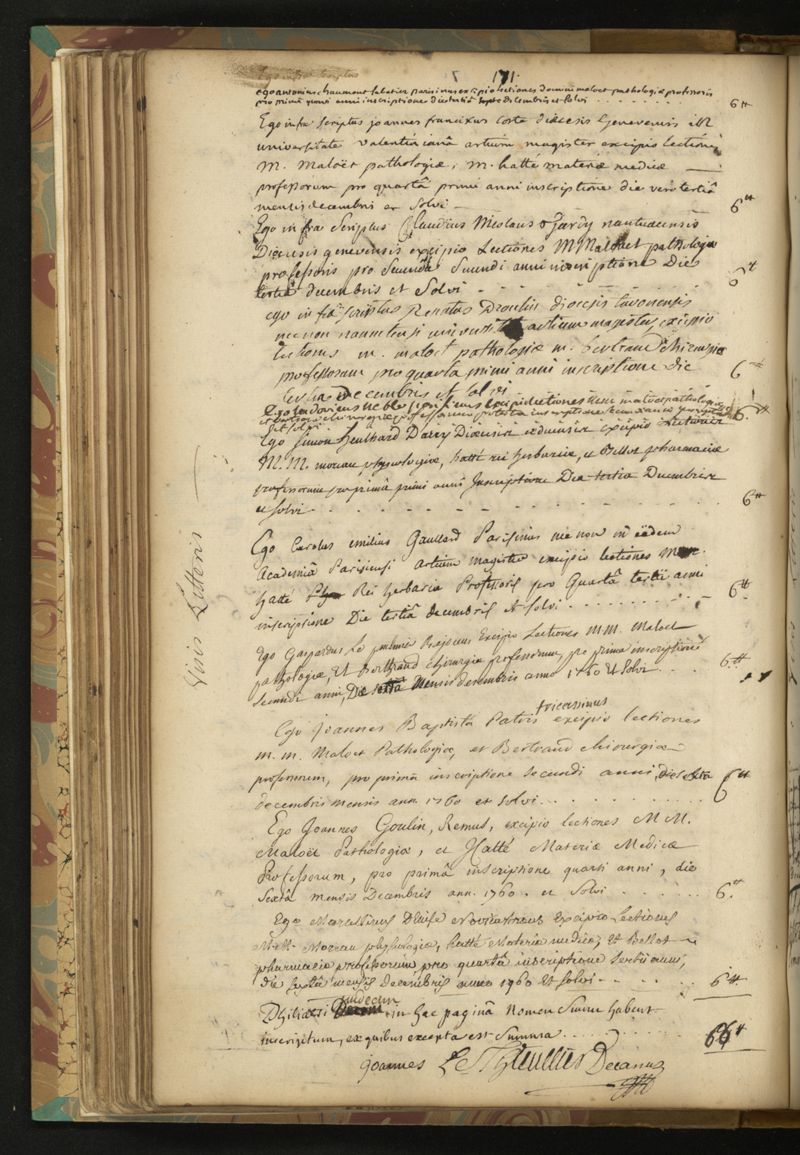 171.
ego antonius chaumont sabatier parisinus excipio lectiones domini maloet pathologiæ professoris
pro primâ anni inscriptione die tertiâ decembris et solvi 6#
Ego infra scriptus joannes franciscus coste diœcesis Genevensis in
universitate valentiniana artium magister excipio lectiones
M. Maloët pathologiæ, M. hatté materiæ medicæ
professorum pro quartâ primi anni inscriptione die vero tertiâ
mensis decembris et solvi - 6#
Ego infra scriptus Claudius Nicolaus Jardy nantuacensis
Diœcesis genevensis excipio Lectiones M Maloet pathologiæ
professoris pro secundâ secundi anni inscriptione Die
tertiâ decembris et solvi - 6#
ego infra scriptus Renatus Droulin diocesis
nec non nannetensi universitate artium magister excipio
lectiones m. maloet pathologiæ m. bertrand chirurgiæ
professorum pro quarta primi anni inscriptione die
tertia decembris et solvi 6#
Ego excipio lectiones maloet pathologiæ
et solvi 6#
Ego Simon heulhard Darcy Diœcesis excipio lectiones
M.M. moreau physiologiæ, hatté rei herbariæ, et Bellot pharmaciæ
professorum pro primâ primi anni Inscriptione Die tertia Decembris
et solvi 6#
Ego Carolus emilius Gaullard Parisinus nec non in eâdem
Academiâ Parisiensi Artium magister excipio lectiones
hatté Rei herbariæ Professoris pro Quartâ tertii anni
inscriptione Die tertiâ decembris et solvi 6#
Ego Gaspardus Le Excipio Lectiones MM. Maloet
pathologiæ, Et Bertrand chirurgiæ professorum, pro prima inscriptione
secundi anni, Die mensis decembris anno 1760 et solvi 6#
tricassinus
Ego Joannes Baptista Patris excipio lectiones
m.m. Maloet Pathologiæ, et Bertrand chirurgiæ
professorum, pro primâ inscriptione secundi anni, die
decembris mensis ann. 1760 et solvi 6#
Ego Joannes Goulin, Remus, excipio lectiones MM.
Maloët Pathologiæ, et Hatté Materiæ Medicæ
Professorum, pro primâ inscriptione quarti anni, die
Sextâ mensis Decembris ann. 1760. et Solvi 6#
Ego Marcellinus excipio Lectiones
M.M. Moreau physiologiæ, hatté Materiæ medicæ, et Bellot
pharmaciæ professorum pro quartâ inscriptione tertii anni,
die sextâ mensis Decembris anno 1760 et solvi 6#
undecim
Philiatri in hac paginâ Nomen suum habent
inscriptum, ex quibus excepta est summa 66#
Joannes Le Thieullier Decanus
Visis Litteris